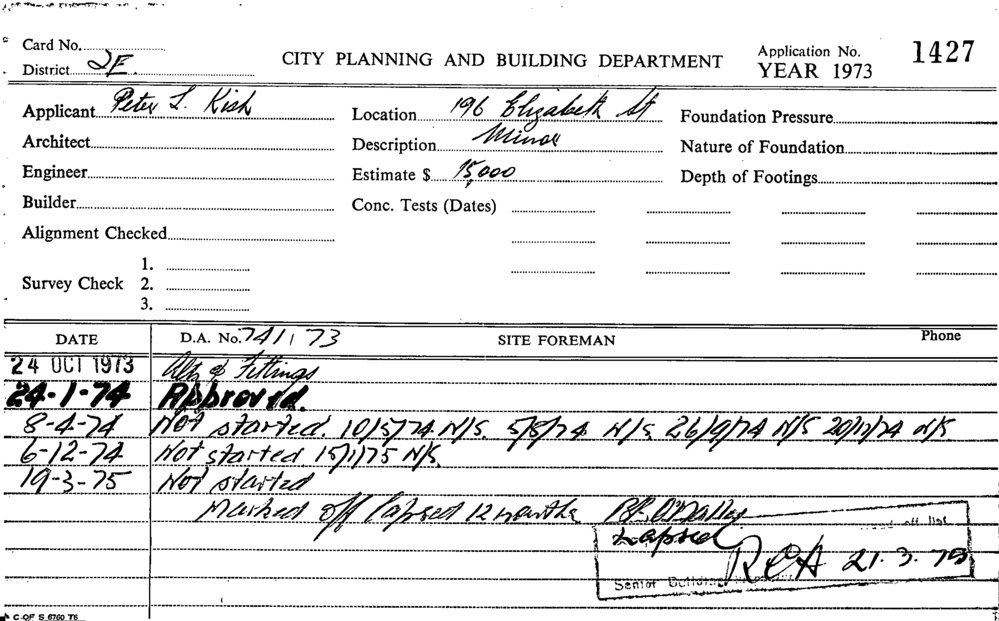 Card No.
District 2E.
CITY PLANNING AND BUILDING DEPARTMENT
Application No.
YEAR 1973
1427
Applicant Peter L. Kish
Architect
Engineer
Builder
Alignment Checked
Survey Check
1.
2.
3.
Location 196 Elizabeth St
Description Minor
Estimate $ 15,000
Conc. Tests (Dates)
Foundation Pressure
Nature of Foundation
Depth of Footings
DATE D.A. No. 741/73 SITE FOREMAN Phone
24 OCT 1973 Alts & Fittings
24-1-74 Approved.
8-4-74 Not started. 10/5/74 N/S. 5/8/74 N/S 26/9/74 N/S 20/11/74 N/S
6-12-74 Not started 15/1/75 N/S.
19-3-75 Not started
Marked off lapsed 12 months
off list
Lapsed
21.3.75
Senior Building
C OF S 6760 T6